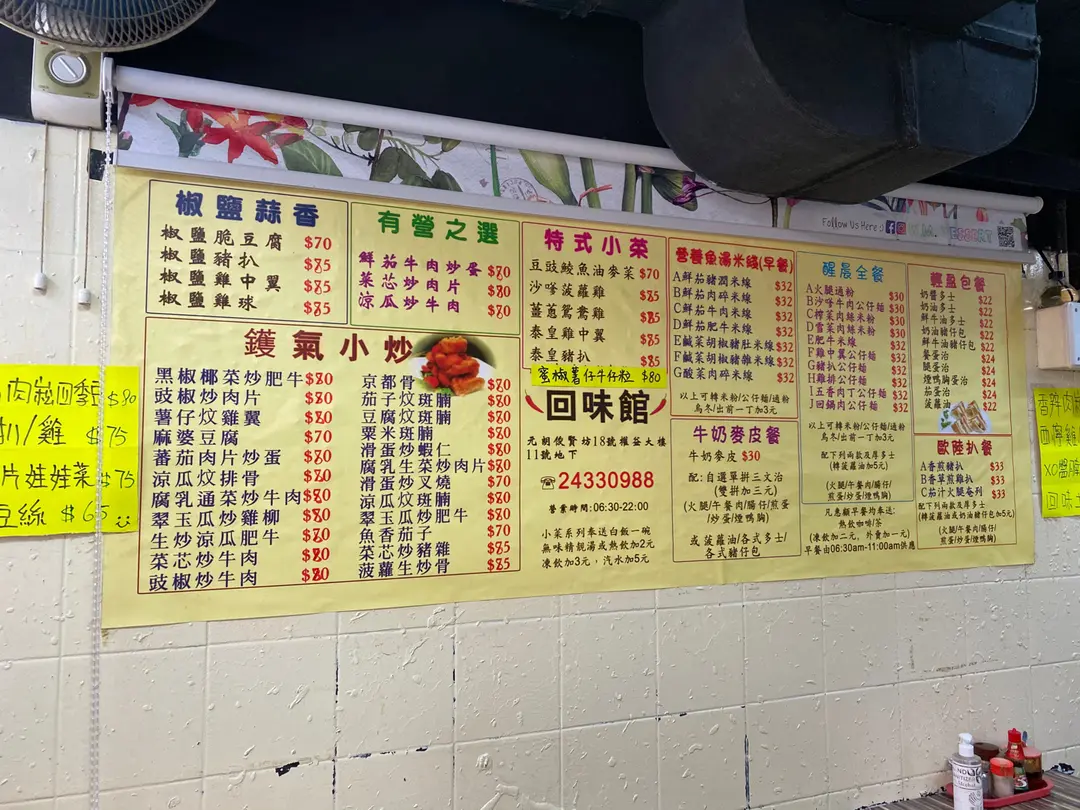 Follow Us Here :)
椒鹽蒜香
椒鹽脆豆腐 $70
椒鹽豬扒 $85
椒鹽雞中翼 $85
椒鹽雞球 $85
有營之選
鮮茄牛肉炒蛋 $80
菜芯炒肉片 $80
涼瓜炒牛肉 $80
特式小菜
豆豉鯪魚油麥菜 $70
沙嗲菠蘿雞 $85
薑蔥鴛鴦雞 $85
泰皇雞中翼 $85
泰皇豬扒 $85
蜜椒薯仔牛仔粒 $80
鑊氣小炒
黑椒椰菜炒肥牛 $80
豉椒炒肉片 $80
薯仔炆雞翼 $80
麻婆豆腐 $70
蕃茄肉片炒蛋 $80
涼瓜炆排骨 $80
腐乳通菜炒牛肉 $80
翠玉瓜炒雞柳 $80
生炒涼瓜肥牛 $80
菜芯炒牛肉 $80
豉椒炒牛肉 $80
京都骨 $80
茄子炆斑腩 $80
豆腐炆斑腩 $80
粟米斑腩 $80
滑蛋炒蝦仁 $80
腐乳生菜炒肉片 $80
滑蛋炒叉燒 $70
涼瓜炆斑腩 $80
翠玉瓜炒肥牛 $80
魚香茄子 $70
菜芯炒豬雜 $85
菠蘿生炒骨 $85
回味館
元朗俊賢坊18號權荃大樓
11號地下
☎24330988
營業時間:06:30-22:00
小菜系列奉送白飯一碗
無味精靚湯或熱飲加2元
凍飲加3元，汽水加5元
營養魚湯米綫(早餐)
A鮮茄豬潤米線 $32
B鮮茄肉碎米線 $32
C鮮茄牛肉米線 $32
D鮮茄肥牛米線 $32
E鹹菜胡椒豬肚米線 $32
F鹹菜胡椒豬雜米線 $32
G酸菜肉碎米線 $32
以上可轉米粉/公仔麵/通粉
烏冬/出前一丁加3元
牛奶麥皮餐
牛奶麥皮 $30
配:自選單拼三文治
(雙拼加三元)
(火腿/午餐肉/腸仔/煎蛋
/炒蛋/煙鴨胸)
或 菠蘿油/各式多士/
各式豬仔包
醒晨全餐
A火腿通粉 $30
B沙嗲牛肉公仔麵 $30
C榨菜肉絲米粉 $30
D雪菜肉絲米粉 $30
E肥牛米線 $32
F雞中翼公仔麵 $32
G豬扒公仔麵 $32
H雞排公仔麵 $32
I五香肉丁公仔麵 $32
J回鍋肉公仔麵 $32
以上可轉米粉/公仔麵/通粉
烏冬/出前一丁加3元
配下列兩款及厚多士
(轉菠蘿油加5元)
(火腿/午餐肉/腸仔/
煎蛋/炒蛋/煙鴨胸)
凡惠顧早餐均奉送:
熱飲咖啡/茶
(凍飲加二元，外賣加一元)
早餐由06:30am-11:00am供應
輕盈包餐
奶醬多士 $22
奶油多士 $22
鮮牛油多士 $22
奶油豬仔包 $22
鮮牛油豬仔包 $22
餐蛋治 $24
腿蛋治 $24
煙鴨胸蛋治 $24
茄蛋治 $24
菠蘿油 $22
歐陸扒餐
A香煎豬扒 $33
B香草煎雞扒 $33
C茄汁火腿奄列 $33
配下列兩款及厚多士
(轉菠蘿油或奶油豬仔包加5元)
(火腿/午餐肉/腸仔/
煎蛋/炒蛋/煙鴨胸)
肉崧四季豆 $80
扒/雞 $75
片娃娃菜 $75
豆絲 $65
香辣肉
西檸雞
XO醬
回味